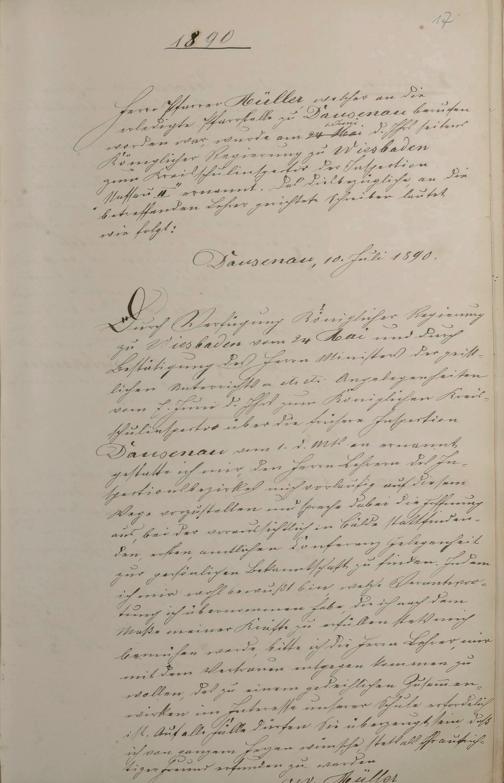 17
1890
Herrn Pfarrer Müller, welcher an die
erledigte Pfarrstelle zu Dausenau berufen
worden war, wurde am 24 Mai d. Jhs. seitens
Königlicher Regierung zu Wiesbaden
zum Kreisschulinspector der Inspection
"Nassau II" ernannt. Das diesbezügliche an die
betreffenden Lehrer gerichtete Schreiben lautet
wie folgt:
Dausenau, 10. Juli 1890.
Durch Verfügung Königlicher Regierung
zu Wiesbaden vom 24 Mai und durch
Bestätigung des Herrn Ministers der geist-
lichen Unterrichts- etc. Angelegenheiten
vom Juni d. Jhs. zum Königlichen Kreis-
schulinspector über die frühere Inspection
Dausenau vom 1. d. Mts. an ernannt,
gestatte ich mir den Herrn Lehrern des In-
spectionsbezirkes mich vorläufig auf diesem
Wege vorzustellen und spreche dabei die Hoffnung
aus, bei der voraussichtlich in Bälde stattfinden-
den ersten amtlichen Conferenz Gelegenheit
zur persönlichen Bekanntschaft zu finden. Indem
ich mir wohl bewußt bin welche Verantwor-
tung ich übernommen habe, die ich nach dem
Maße meiner Kräfte zu erfüllen stets mich
bemühen werde, bitte ich die Herrn Lehrer, mir
mit dem Vertrauen entgegen kommen zu
wollen, das zu einem gedeihlichen Zusammen-
wirken im Interesse unserer Schule erforderlich
ist. Auf alle Fälle dürfen Sie überzeugt sein, daß
ich von ganzem Herzen wünsche stets als Ihr aufrich-
tiger Freund erfunden zu werden
Müller